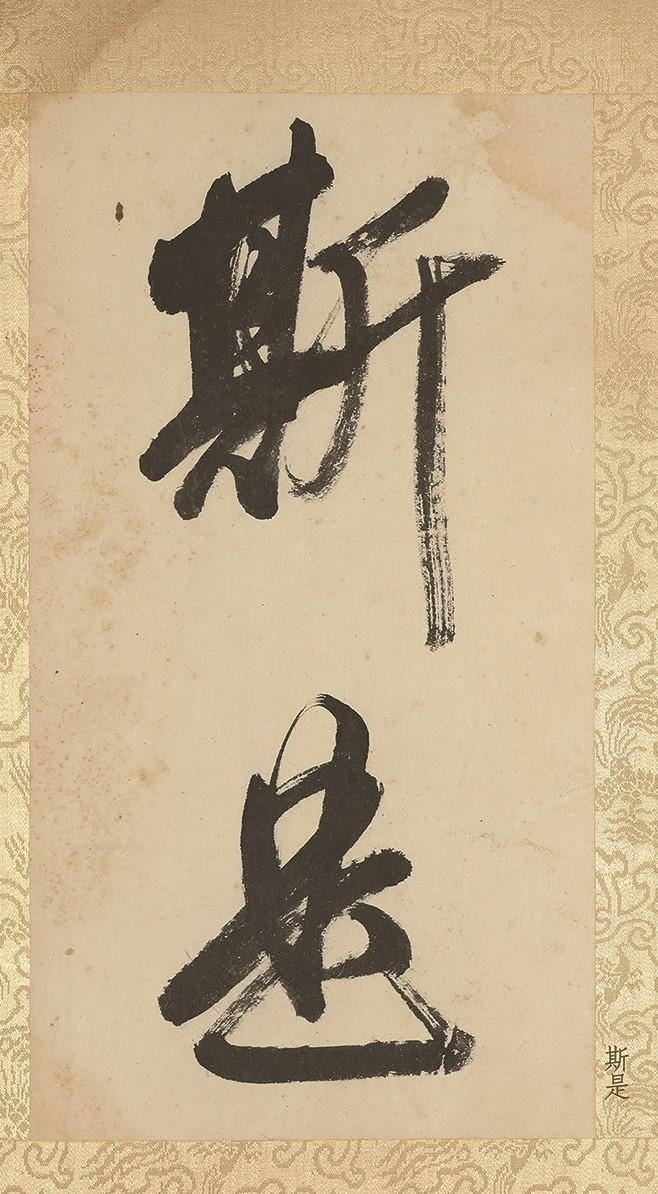 斯是
斯是